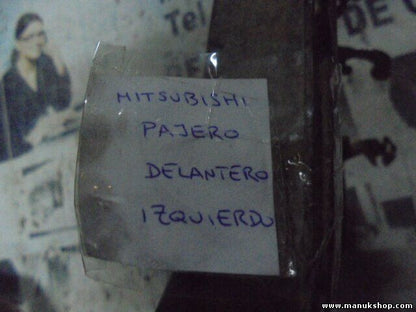 Tel
DE
MITSUBISHI
PAJERO
DELANTERO
IZQUIERDO
www.manukshop.com